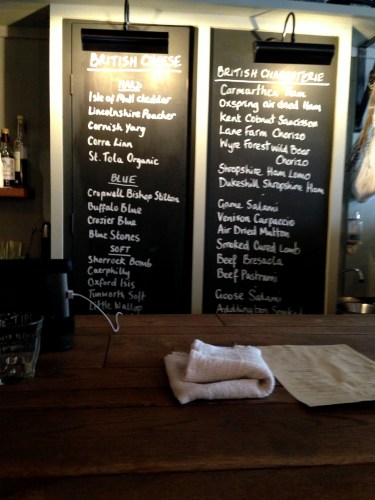 BRITISH CHEESE
HARD
Isle of Mull cheddar
Lincolnshire Poacher
Cornish Yarg
Corra Linn
St. Tola Organic
BLUE
Cropwell Bishop Stilton
Buffalo Blue
Crozier Blue
Blue Stones
SOFT
Sherrock Bomb
Caerphilly
Oxford Isis
Tunworth Soft
Little Wallop
BRITISH CHARCUTERIE
Carmarthen Ham
Oxspring air dried Ham
Kent Cobnut Saucisson
Lane Farm Chorizo
Wyre Forest Wild Boar
Chorizo
Shropshire Ham Lomo
Dukeshill Shropshire Ham
Game Salami
Venison Carpaccio
Air Dried Mutton
Smoked Cured Lamb
Beef Bresaola
Beef Pastrami
Goose Salami
Addlington Smoked